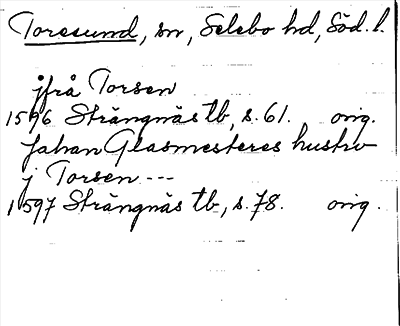 Toresund, sn, Selebo hd, Söd. l.
ifrå Torsen
1596 Strängnäs tb, s. 61. orig.
Jahan Glasmesteres hustro
j Torsen ---
1597 Strängnäs tb, s. 78. orig.